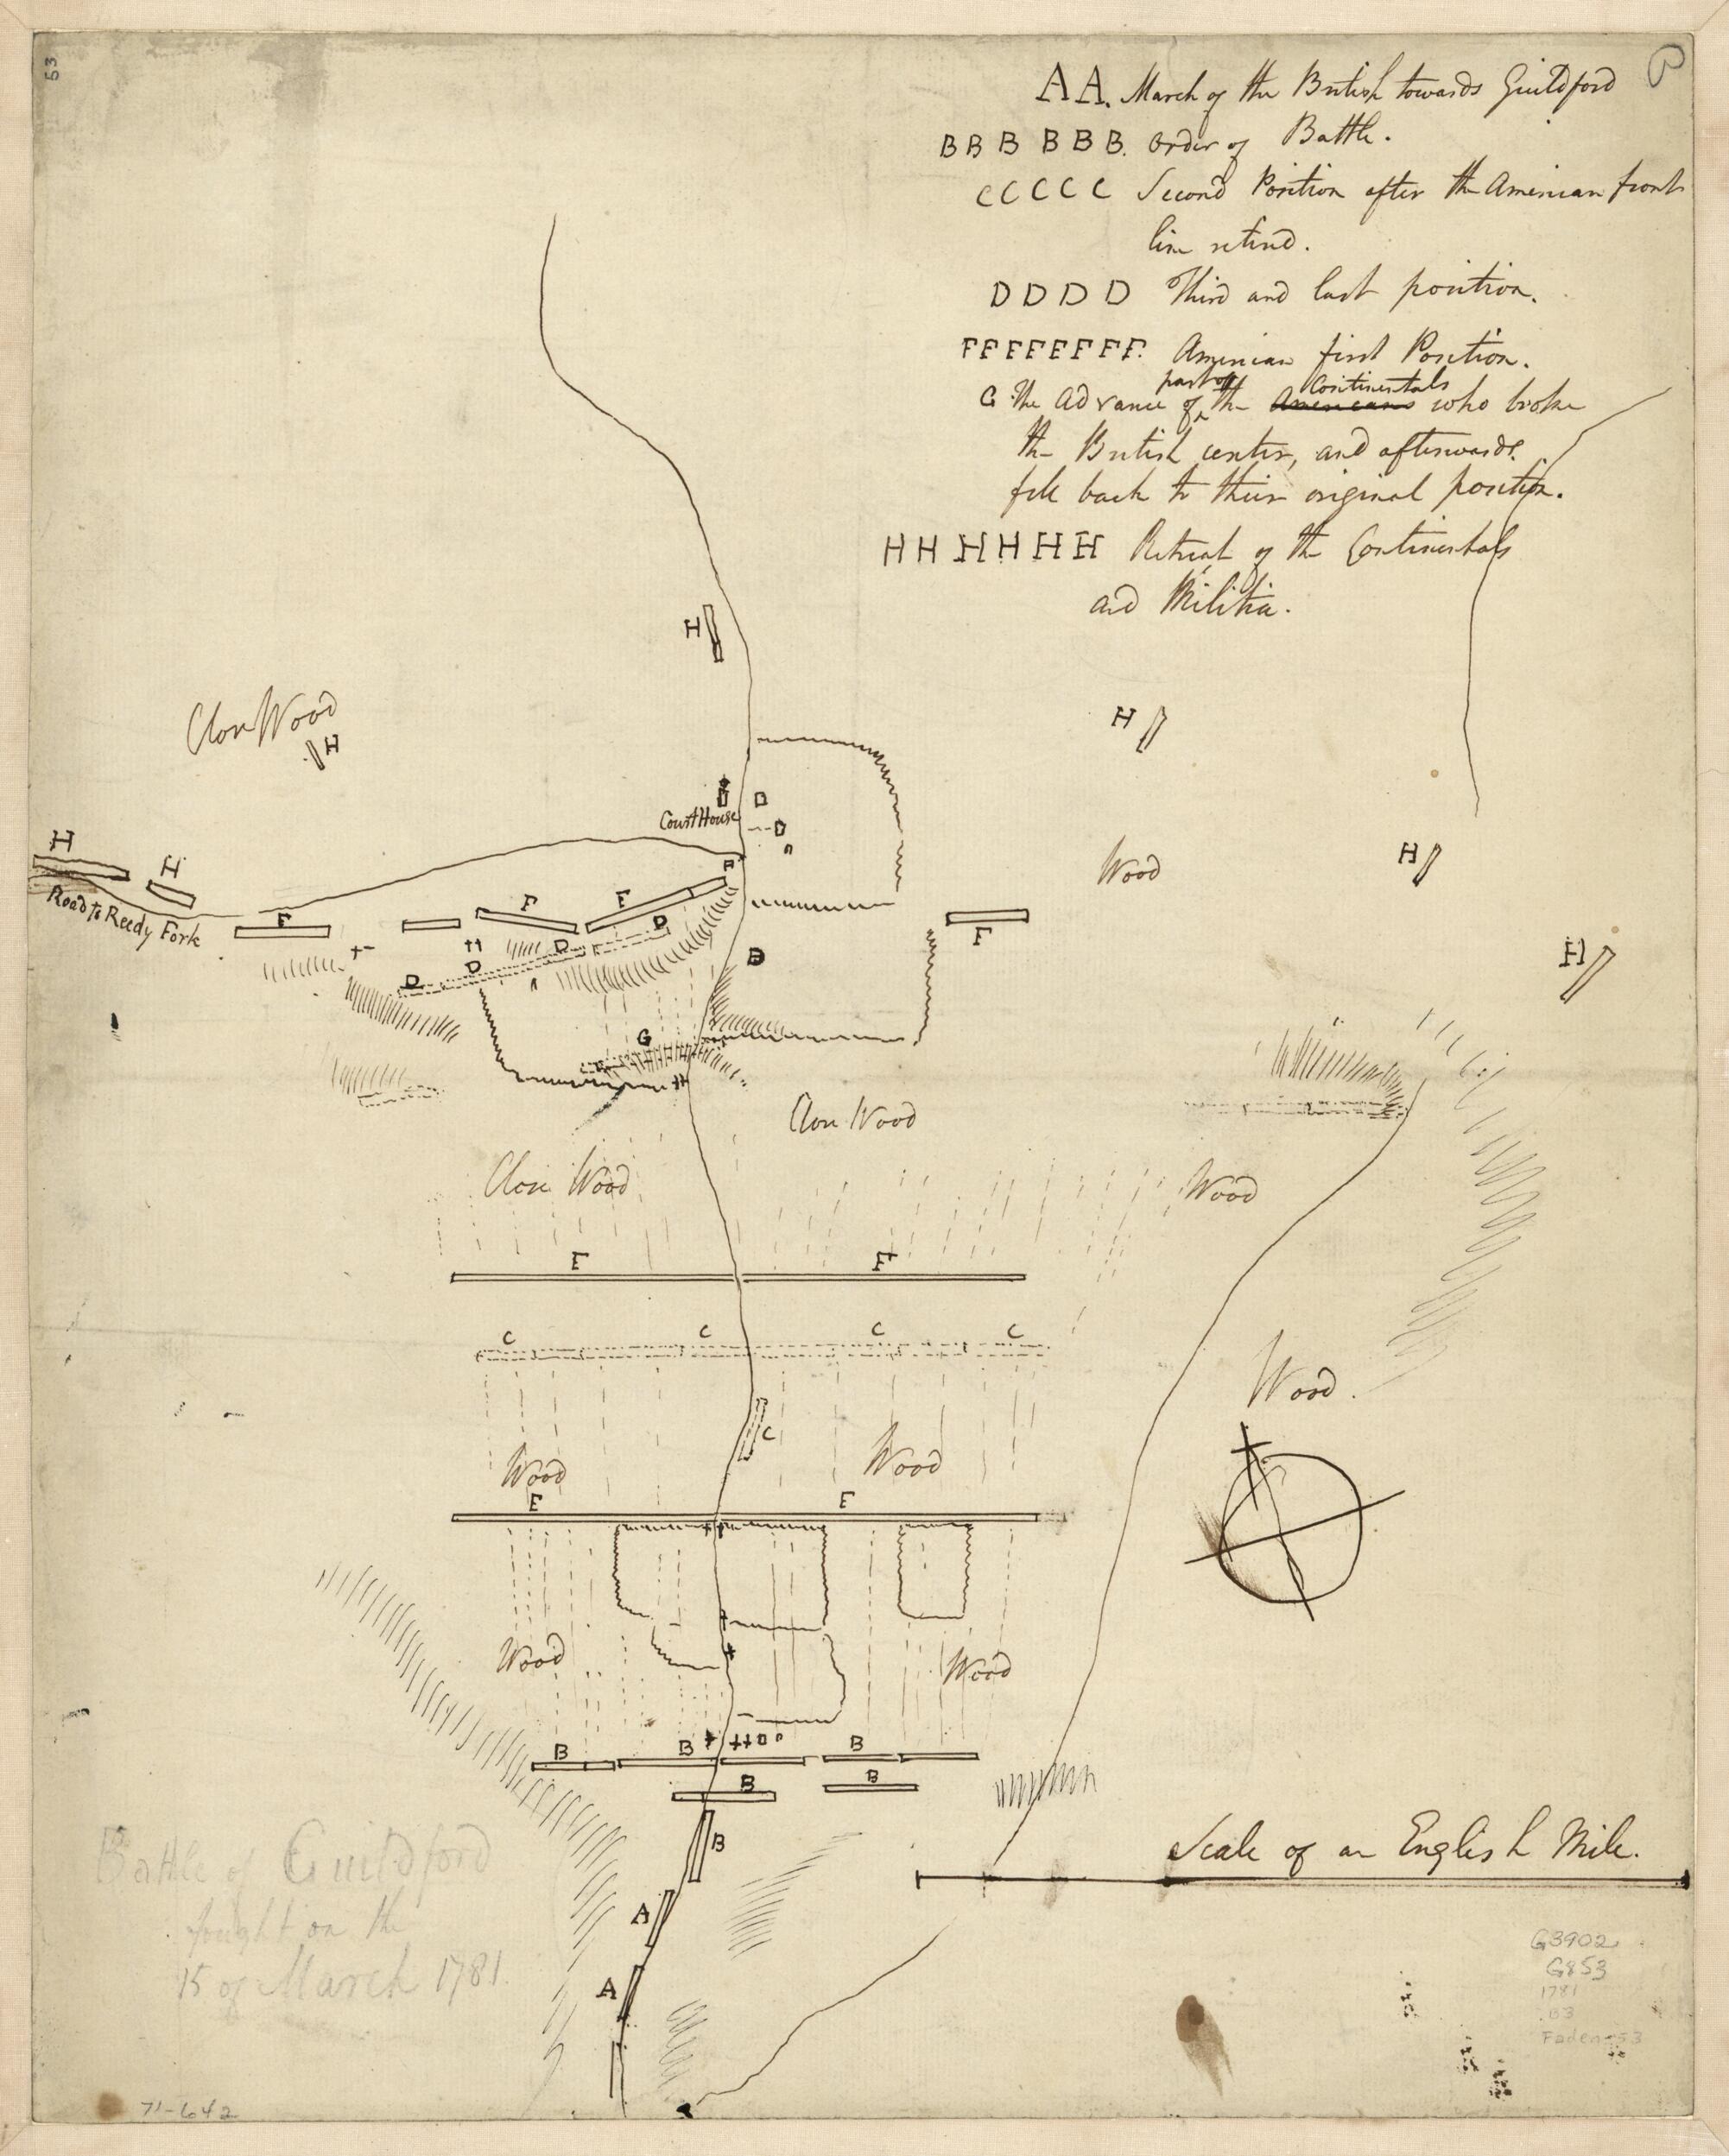 53
AA. March of the British towards Guildford
BBB BBB. Order of Battle.
CCCCC Second Position after the American front
line retired.
DDDD Third and last position.
FFFFFFFF. American first Position.
part of Continentals
G. The Advance of the Americans who broke
the British center, and afterwards
fell back to their original position.
HHHHHH Retreat of the Continentals
and Militia.
H
H
Close Wood
H
Court House
H
H
Wood
H
Road to Reedy Fork
F
F
F
F
F
D
D
D
D
D
H
G
Close Wood
Close Wood
Wood
F
F
C
C
C
C
Wood.
C
Wood
Wood
F
F
Wood
Wood
B
B
B
B
B
B
Scale of an English Mile.
Battle of Guildford
fought on the
15 of March 1781.
A
A
G3902
G853
1781
.B3
Faden 53
71-642